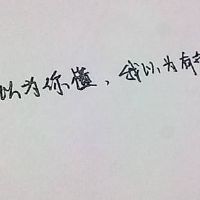 以为你懂，我以为有